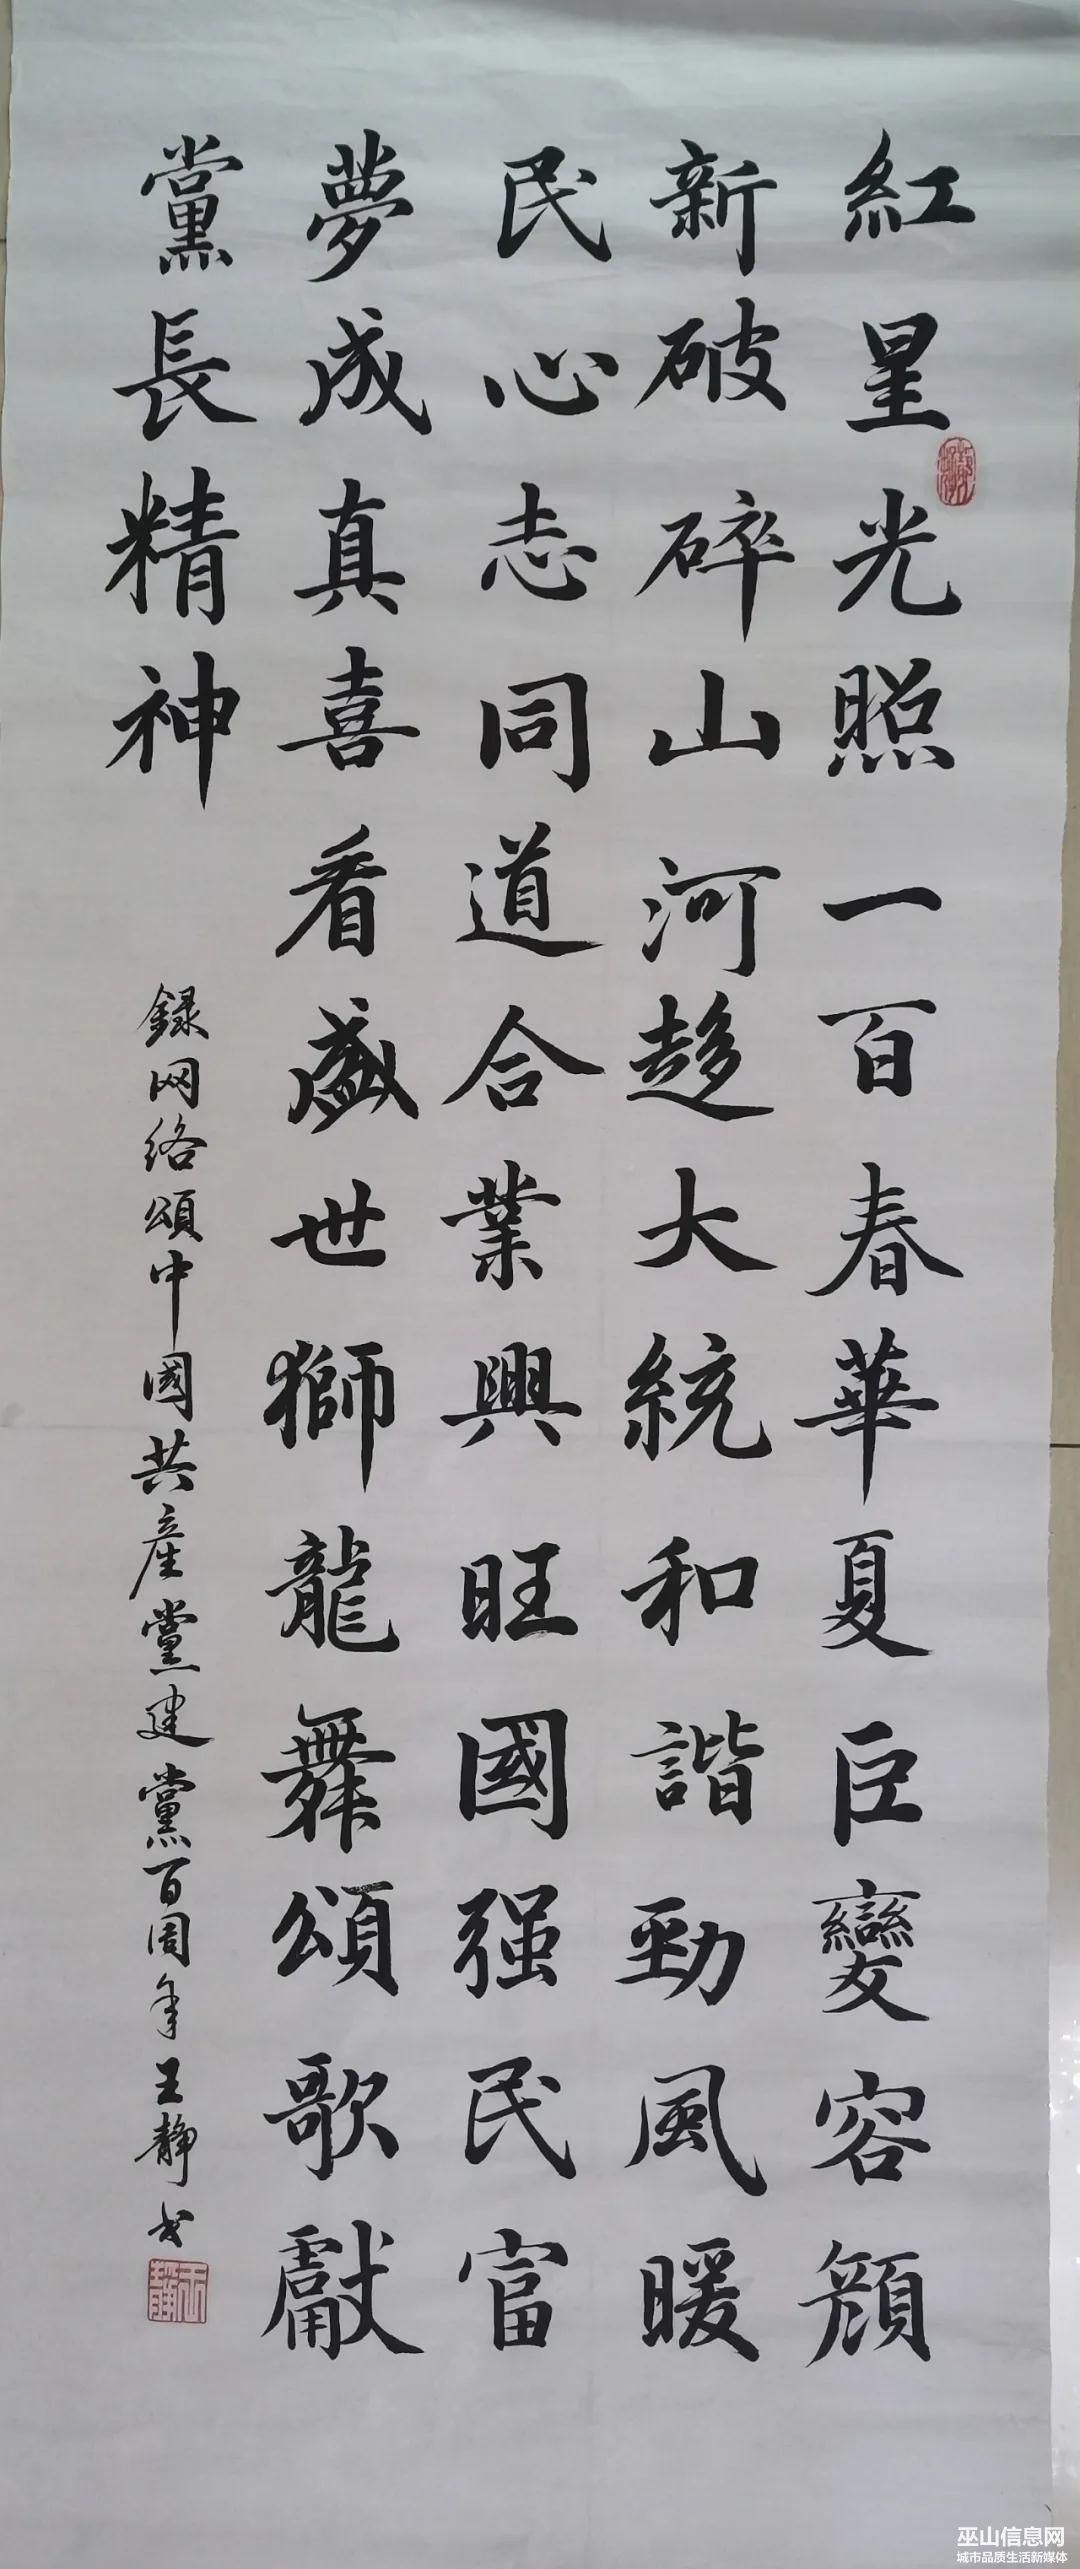 紅星光照一百春華夏巨變容顔
新破碎山河趍大統和諧勁風暖
民心志同道合業興旺國强民富
夢成真喜看盛世獅龍舞頌歌獻
黨長精神
録网络頌中國共產黨建黨百周年王静书
巫山信息网
城市品质生活新媒体